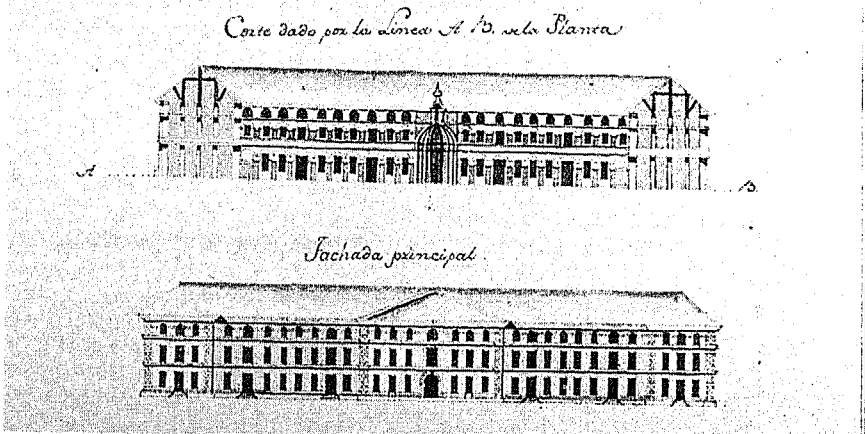 Corte dado por la Linea A B. de la Planta
A
B.
Fachada principal.